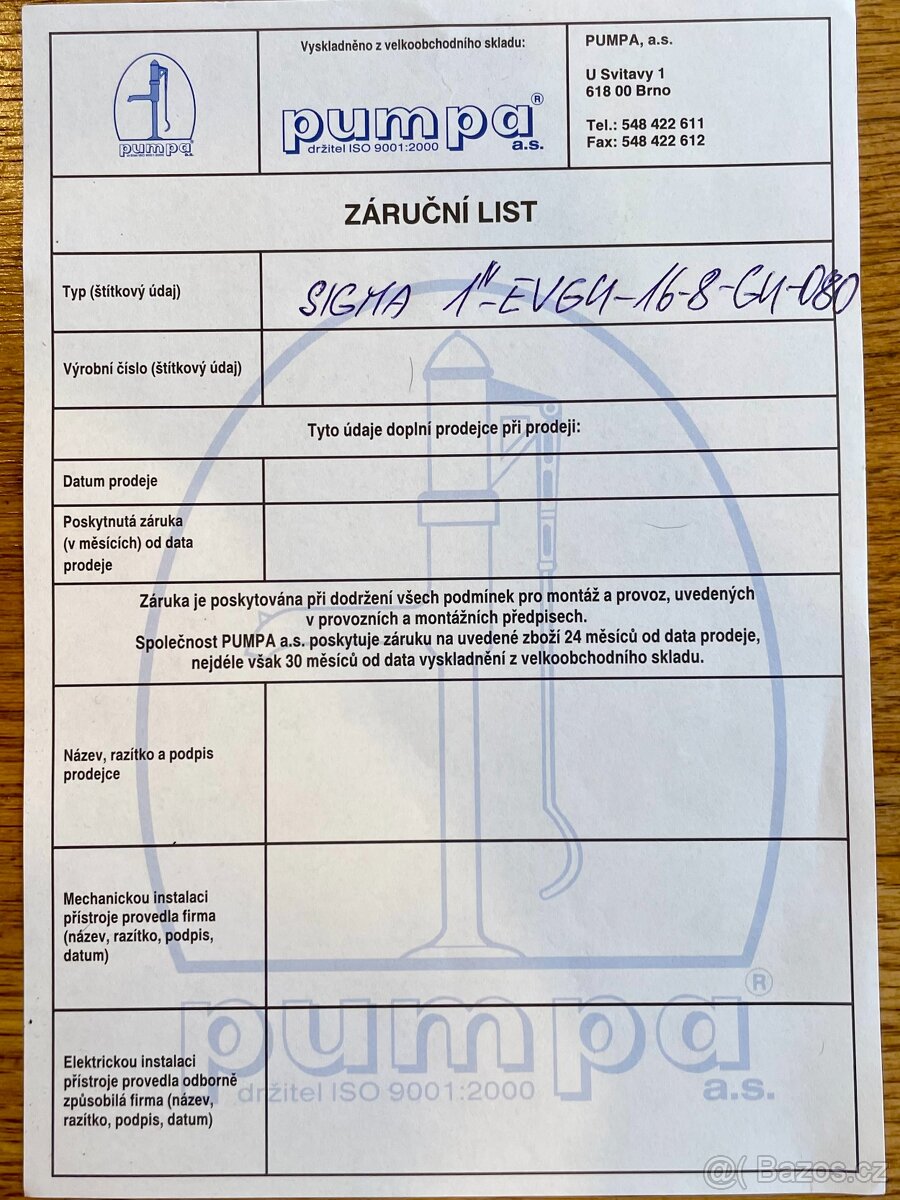 pumpa
a.s.
držitel ISO 9001:2000
Vyskladněno z velkoobchodního skladu:
pumpa®
držitel ISO 9001:2000
a.s.
PUMPA, a.s.
U Svitavy 1
618 00 Brno
Tel.: 548 422 611
Fax: 548 422 612
ZÁRUČNÍ LIST
Typ (štítkový údaj)
SIGMA 1"-EVGU-16-8-GU-080
Výrobní číslo (štítkový údaj)
Tyto údaje doplní prodejce při prodeji:
Datum prodeje
Poskytnutá záruka
(v měsících) od data
prodeje
Záruka je poskytována při dodržení všech podmínek pro montáž a provoz, uvedených
v provozních a montážních předpisech.
Společnost PUMPA a.s. poskytuje záruku na uvedené zboží 24 měsíců od data prodeje,
nejdéle však 30 měsíců od data vyskladnění z velkoobchodního skladu.
Název, razítko a podpis
prodejce
Mechanickou instalaci
přístroje provedla firma
(název, razítko, podpis,
datum)
Elektrickou instalaci
přístroje provedla odborně
způsobilá firma (název,
razítko, podpis, datum)
pumpa®
držitel ISO 9001:2000
a.s.
@( Bazos.cz